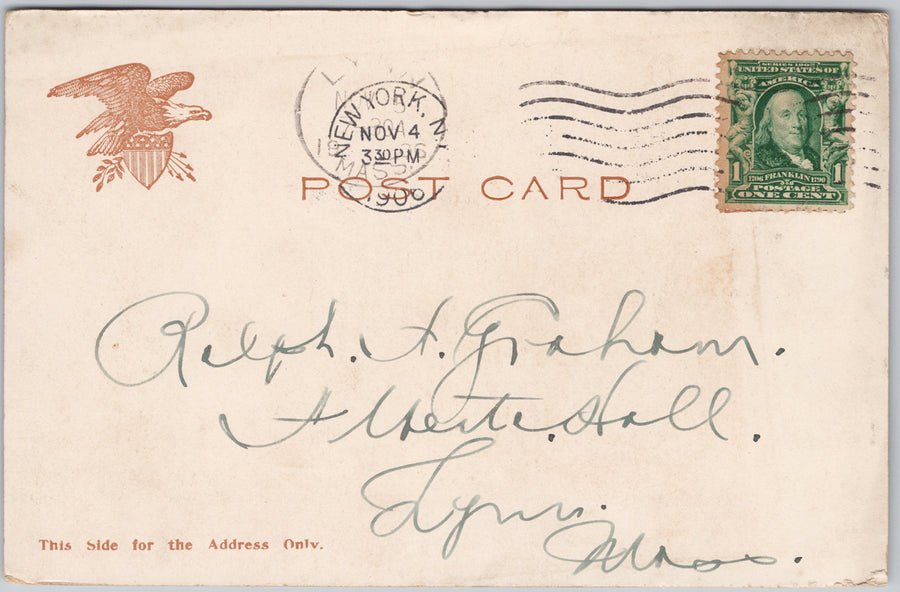 SERIES 1902
UNITED STATES OF
AMERICA
1 1706 FRANKLIN 1790 1
POSTAGE
ONE CENT
NEW YORK, N.Y.
NOV 4
3 30 PM
1906
LYNN
MASS.
POST CARD
Ralph. A. Graham.
Alberta. Hall.
Lynn.
Mass.
This Side for the Address Only.